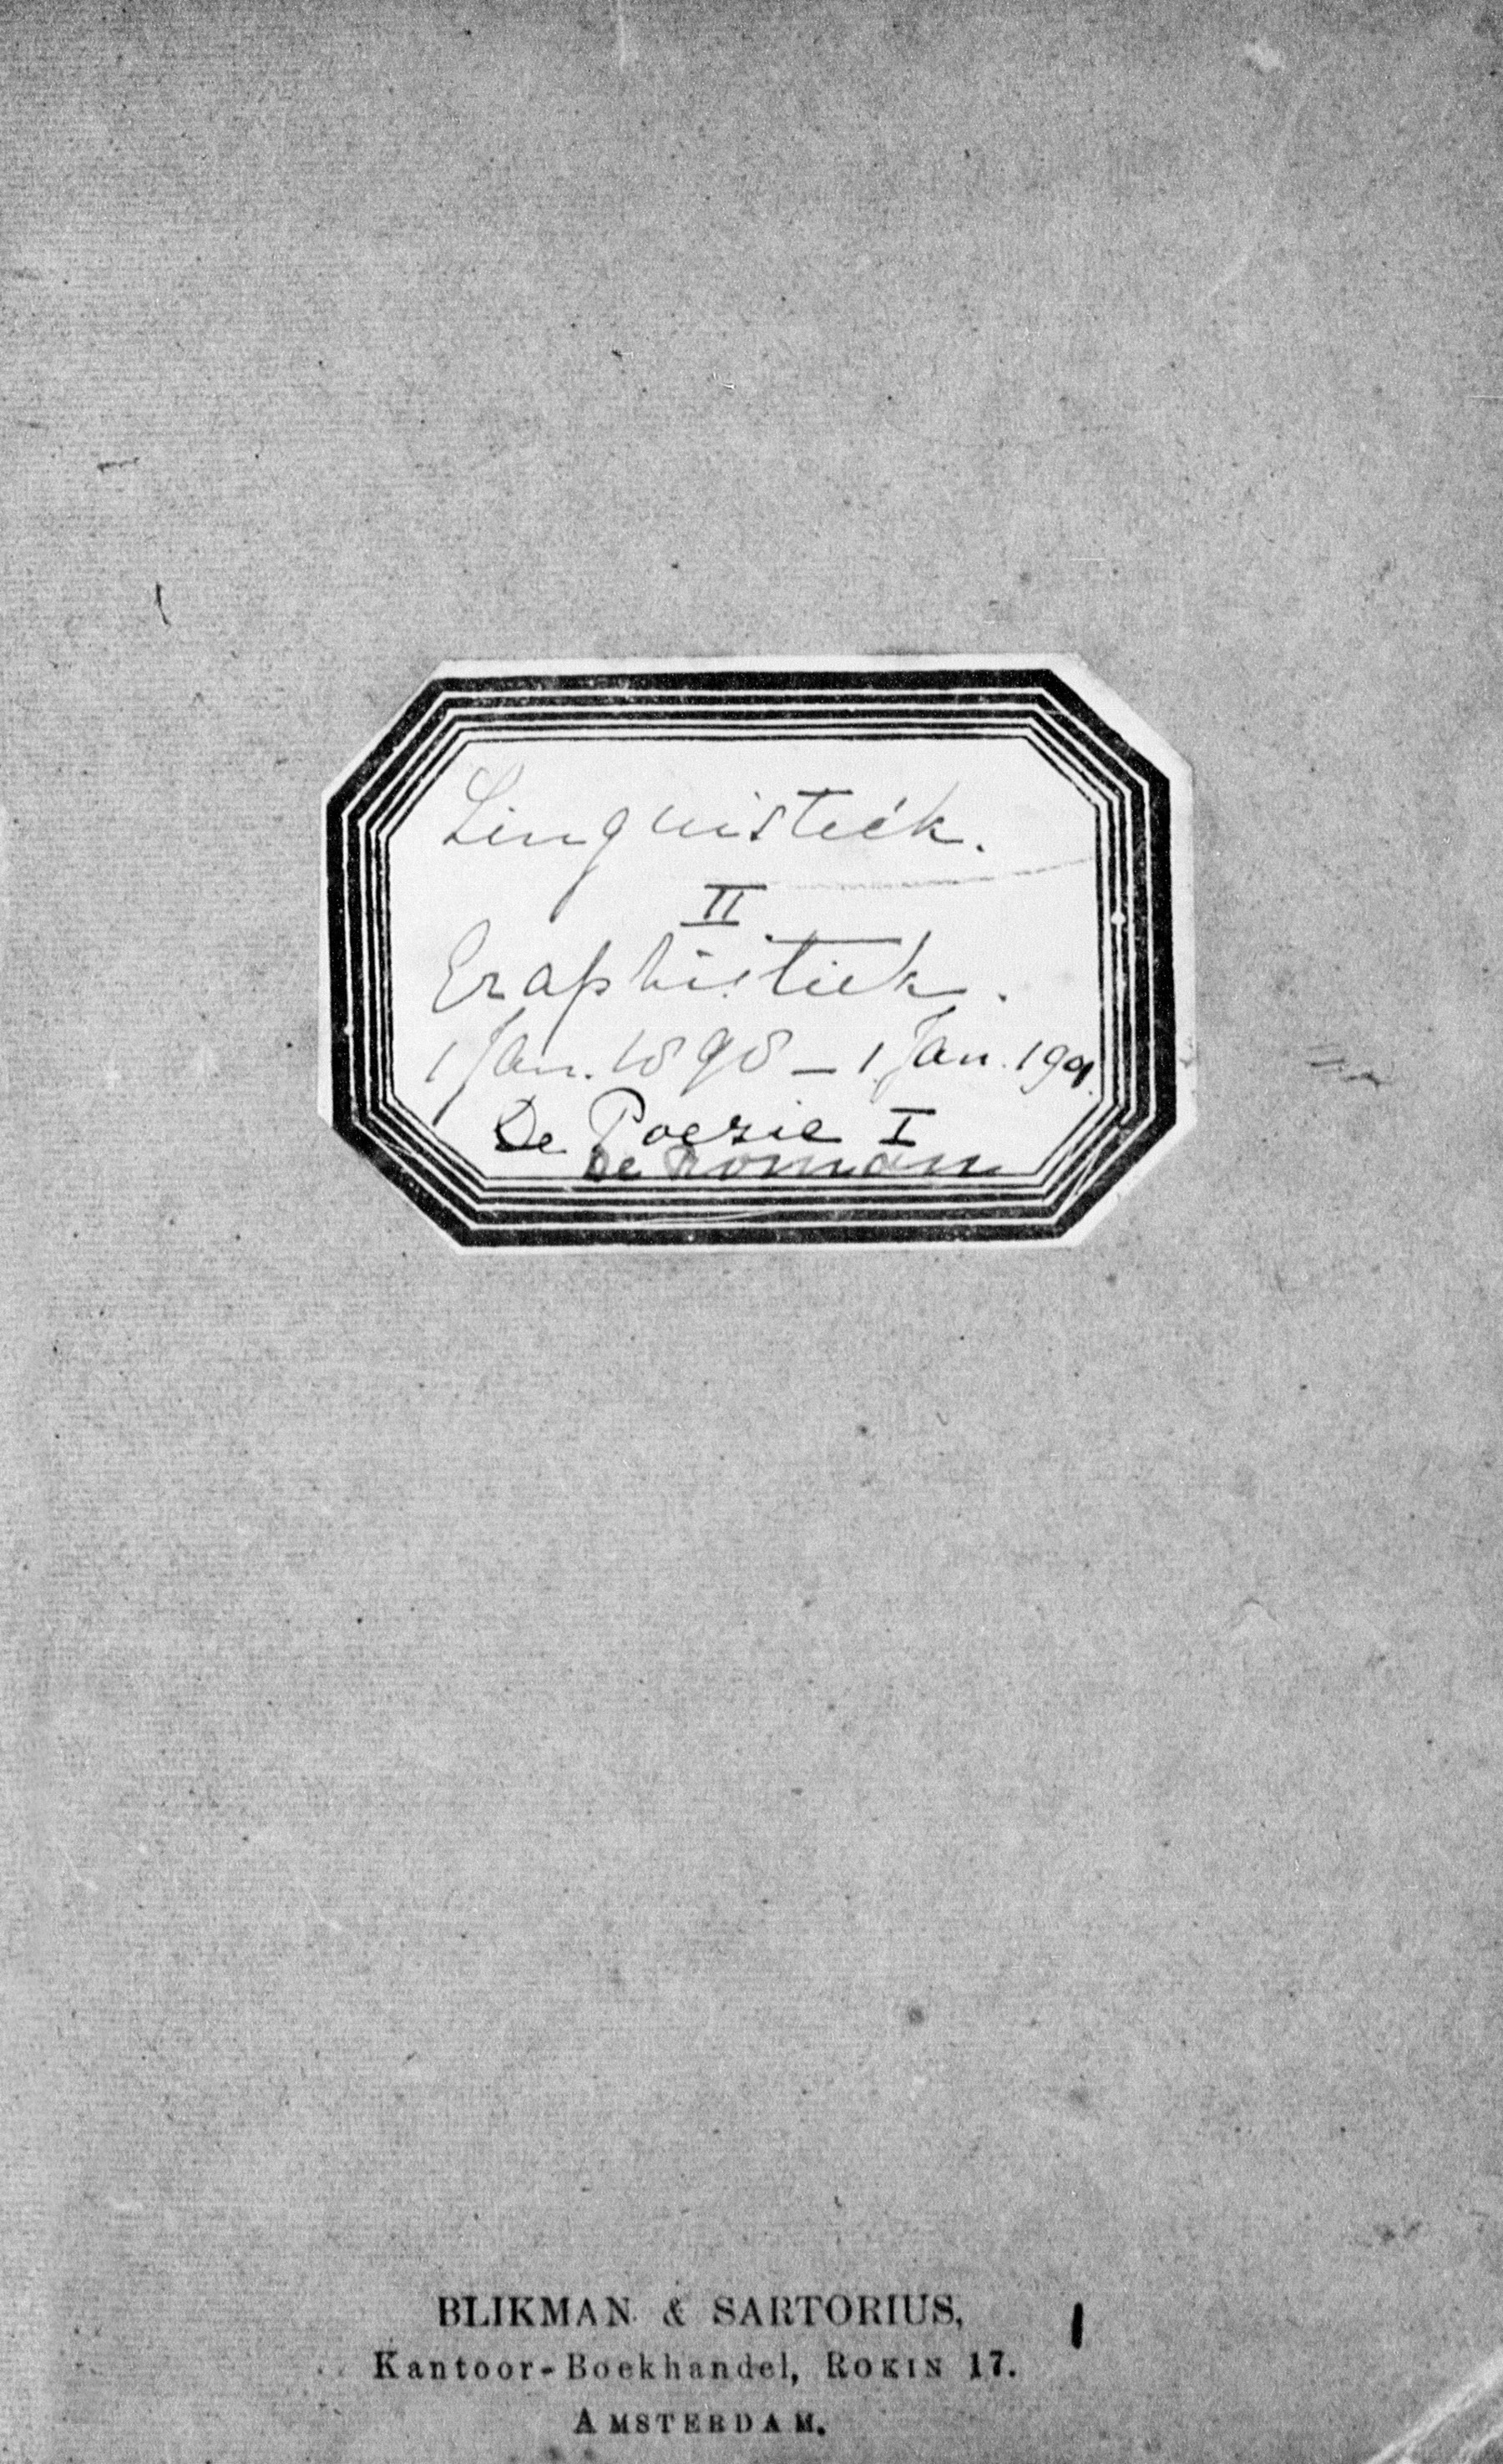 Linguistiek.
II
Graphistiek.
1 Jan. 1898 – 1 Jan. 1901.
De Poezie I
De Roman
BLIKMAN & SARTORIUS,
Kantoor-Boekhandel, ROKIN 17.
AMSTERDAM.